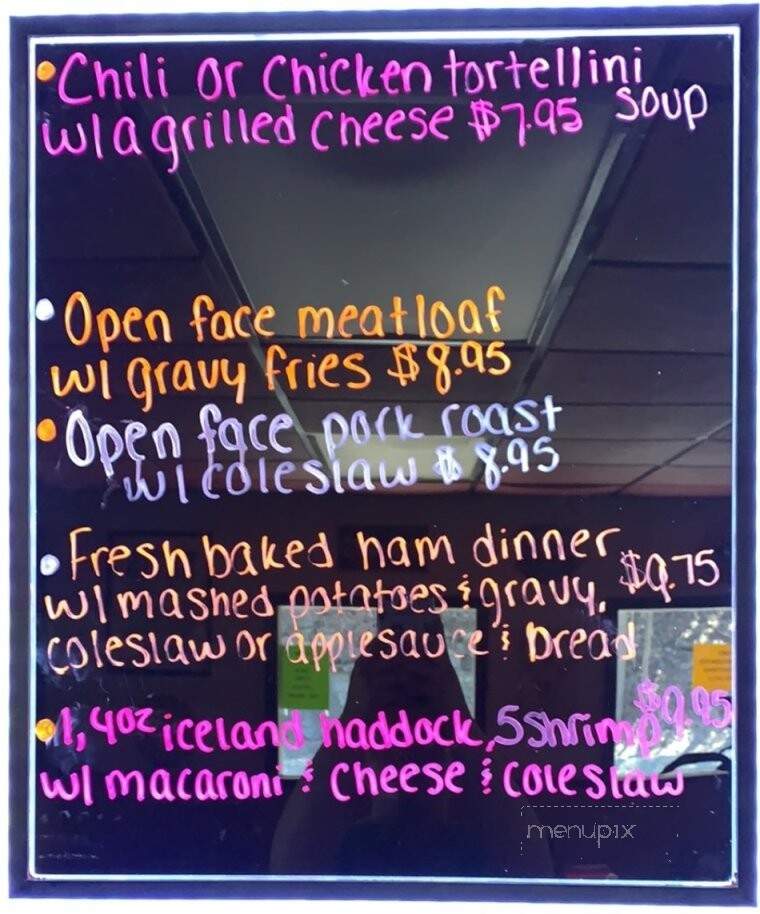 • Chili or Chicken tortellini
w/ a grilled Cheese $7.95 Soup
• Open face meatloaf
w/ gravy fries $8.95
• Open face pork roast
w/ coleslaw $8.95
• Fresh baked ham dinner
w/ mashed potatoes & gravy, $9.75
coleslaw or applesauce & bread
• 1, 4oz iceland haddock, 5 shrimp $9.95
w/ macaroni & cheese & coleslaw
menupix